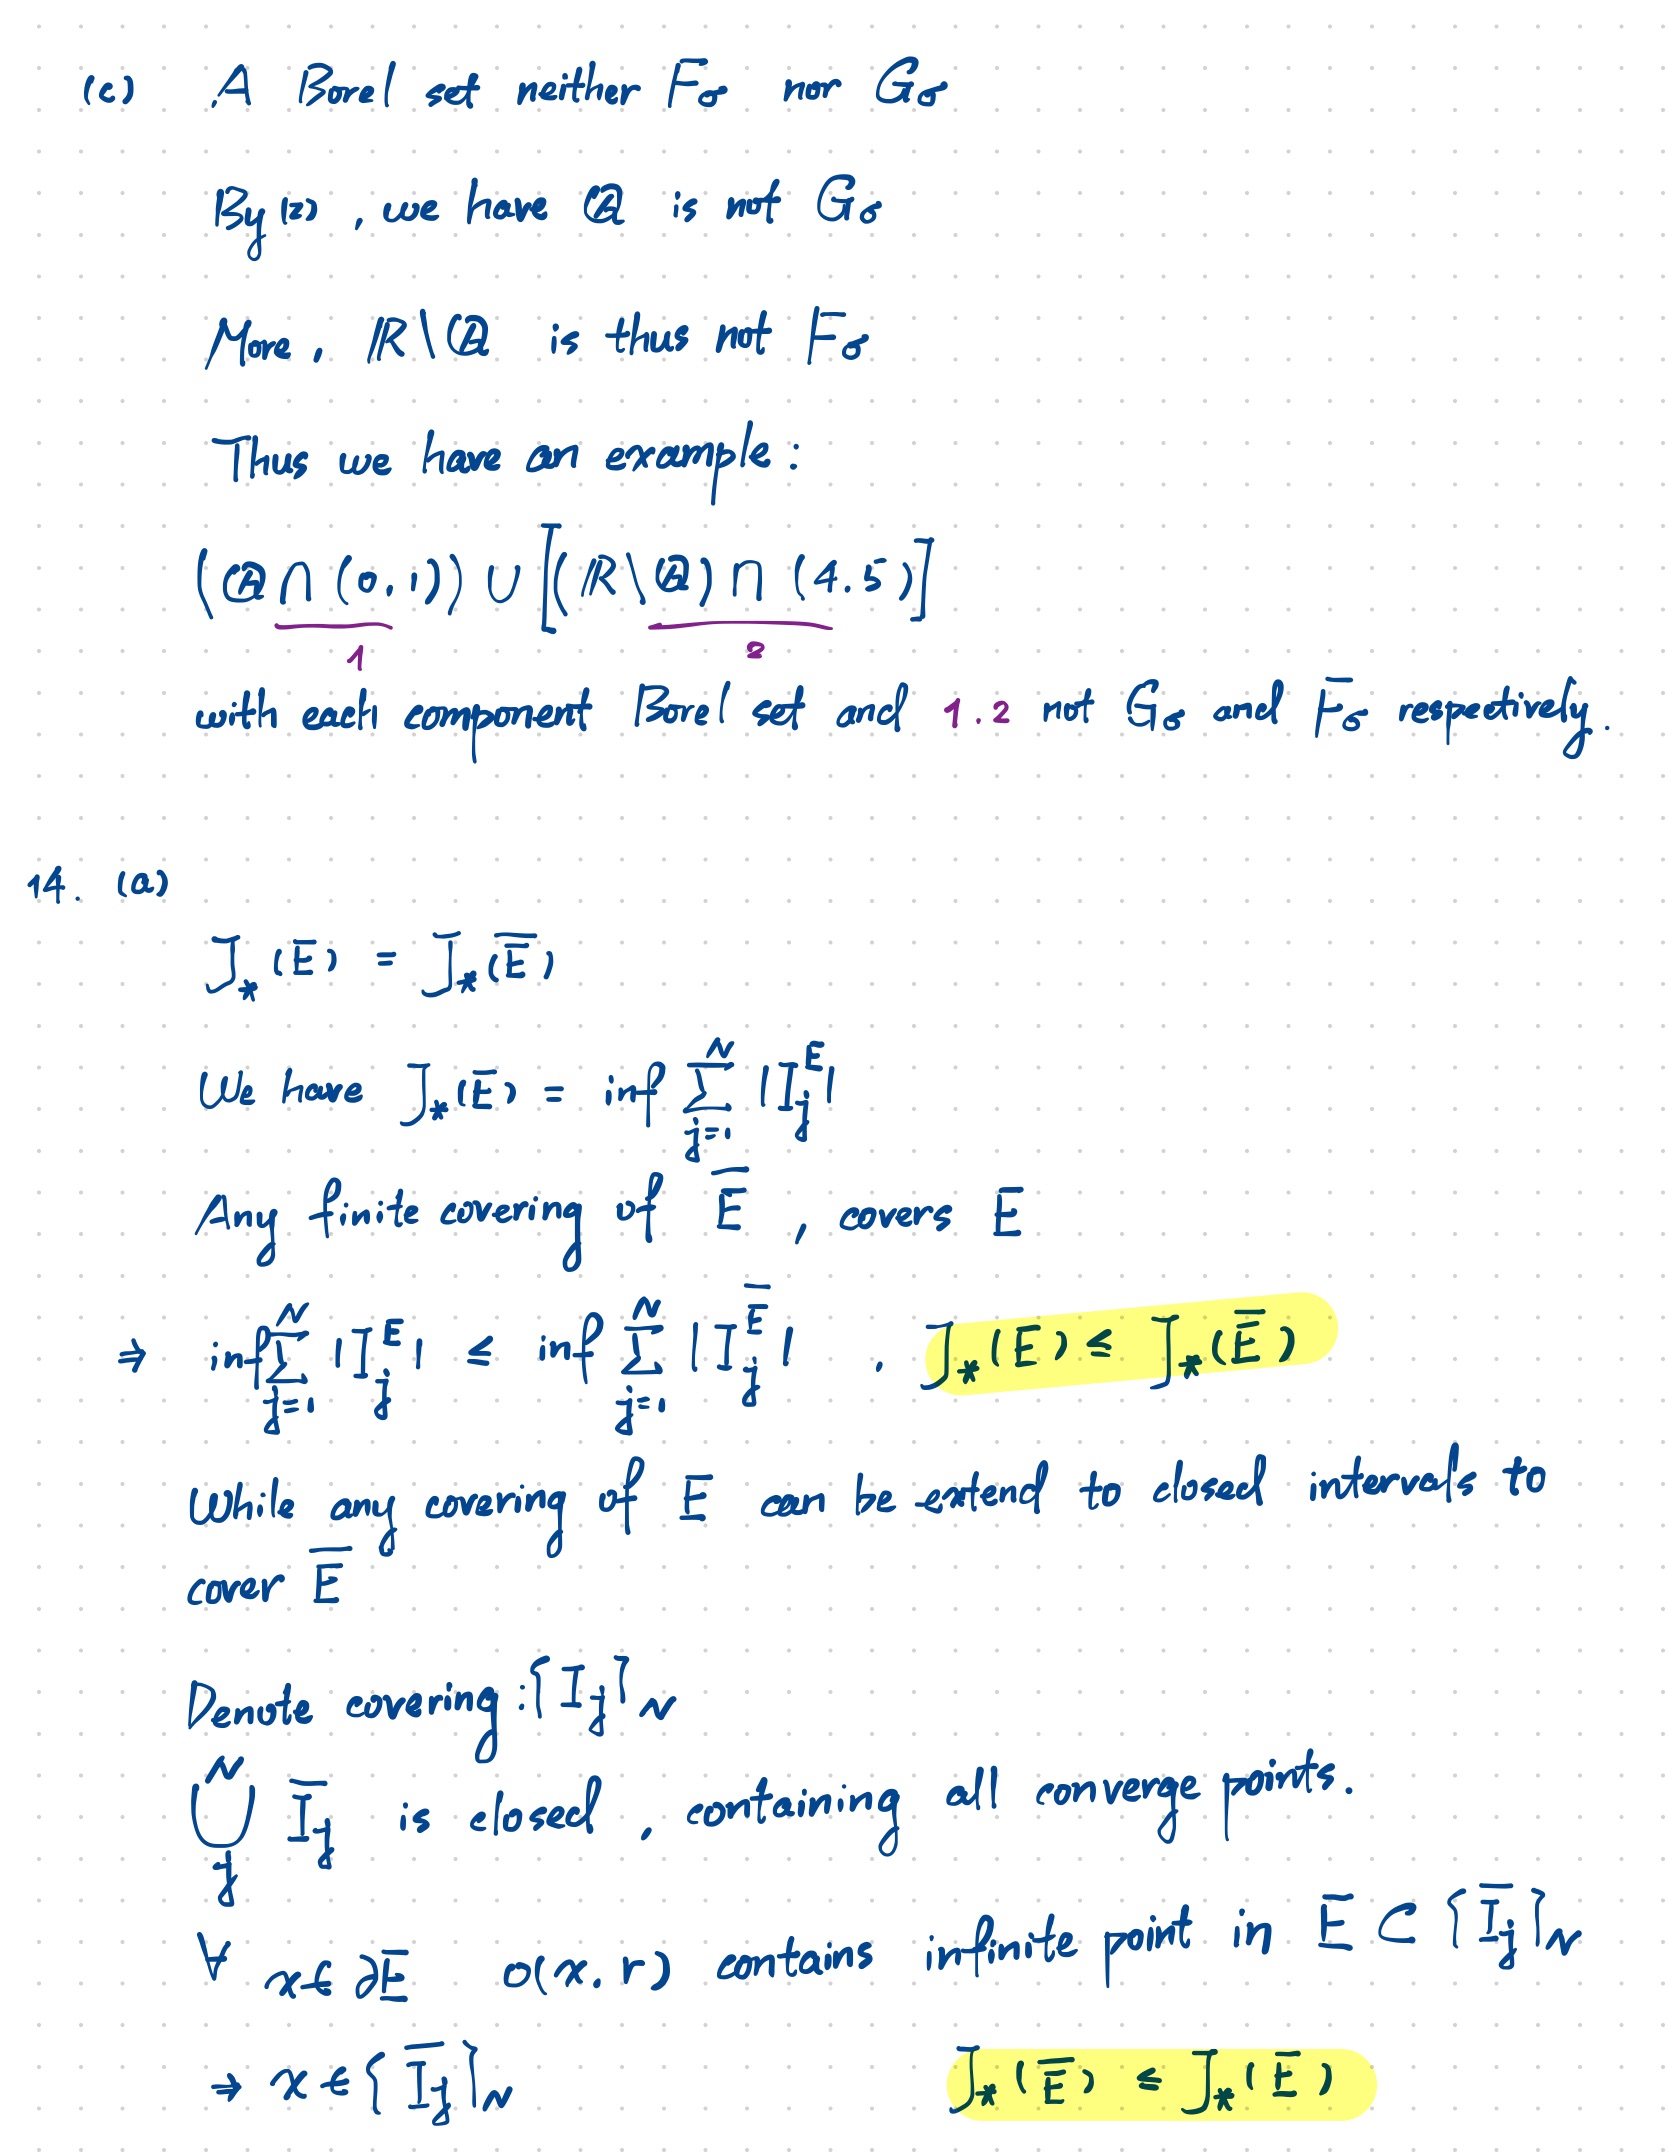 (c) A Borel set neither Fσ nor Gσ
By (2), we have ℚ is not Gσ
More, ℝ\ℚ is thus not Fσ
Thus we have an example:
(ℚ∩(0,1)) ∪ [(ℝ\ℚ)∩(4.5)]
1 2
with each component Borel set and 1.2 not Gσ and Fσ respectively.
14. (a)
J_*(E) = J_*(E̅)
We have J_*(E) = inf ∑_{j=1}^{N} |I_j^E|
Any finite covering of E̅, covers E
⇒ inf ∑_{j=1}^{N} |I_j^E| ≤ inf ∑_{j=1}^{N} |I_j^{E̅}| . J_*(E) ≤ J_*(E̅)
While any covering of E can be extend to closed intervals to
cover E̅
Denote covering: {I_j}_N
⋃_j^N I̅_j is closed, containing all converge points.
∀ x∈∂E o(x.r) contains infinite point in E ⊂ {I̅_j}_N
⇒ x∈{I̅_j}_N J_*(E̅) ≤ J_*(E)